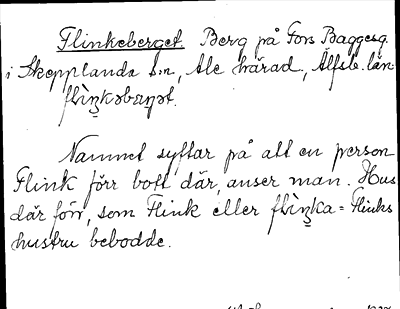 Flinkeberget. Berg på Fors Baggesg.
i Skepplanda s:n, Ale härad, Älfsb. län
flìŋ̲kəbæṛjət.
Namnet syftar på att en person
Flink förr bott där, anser man. Hus
där förr, som Flink eller flìŋ̲ka = Flinks
hustru bebodde.